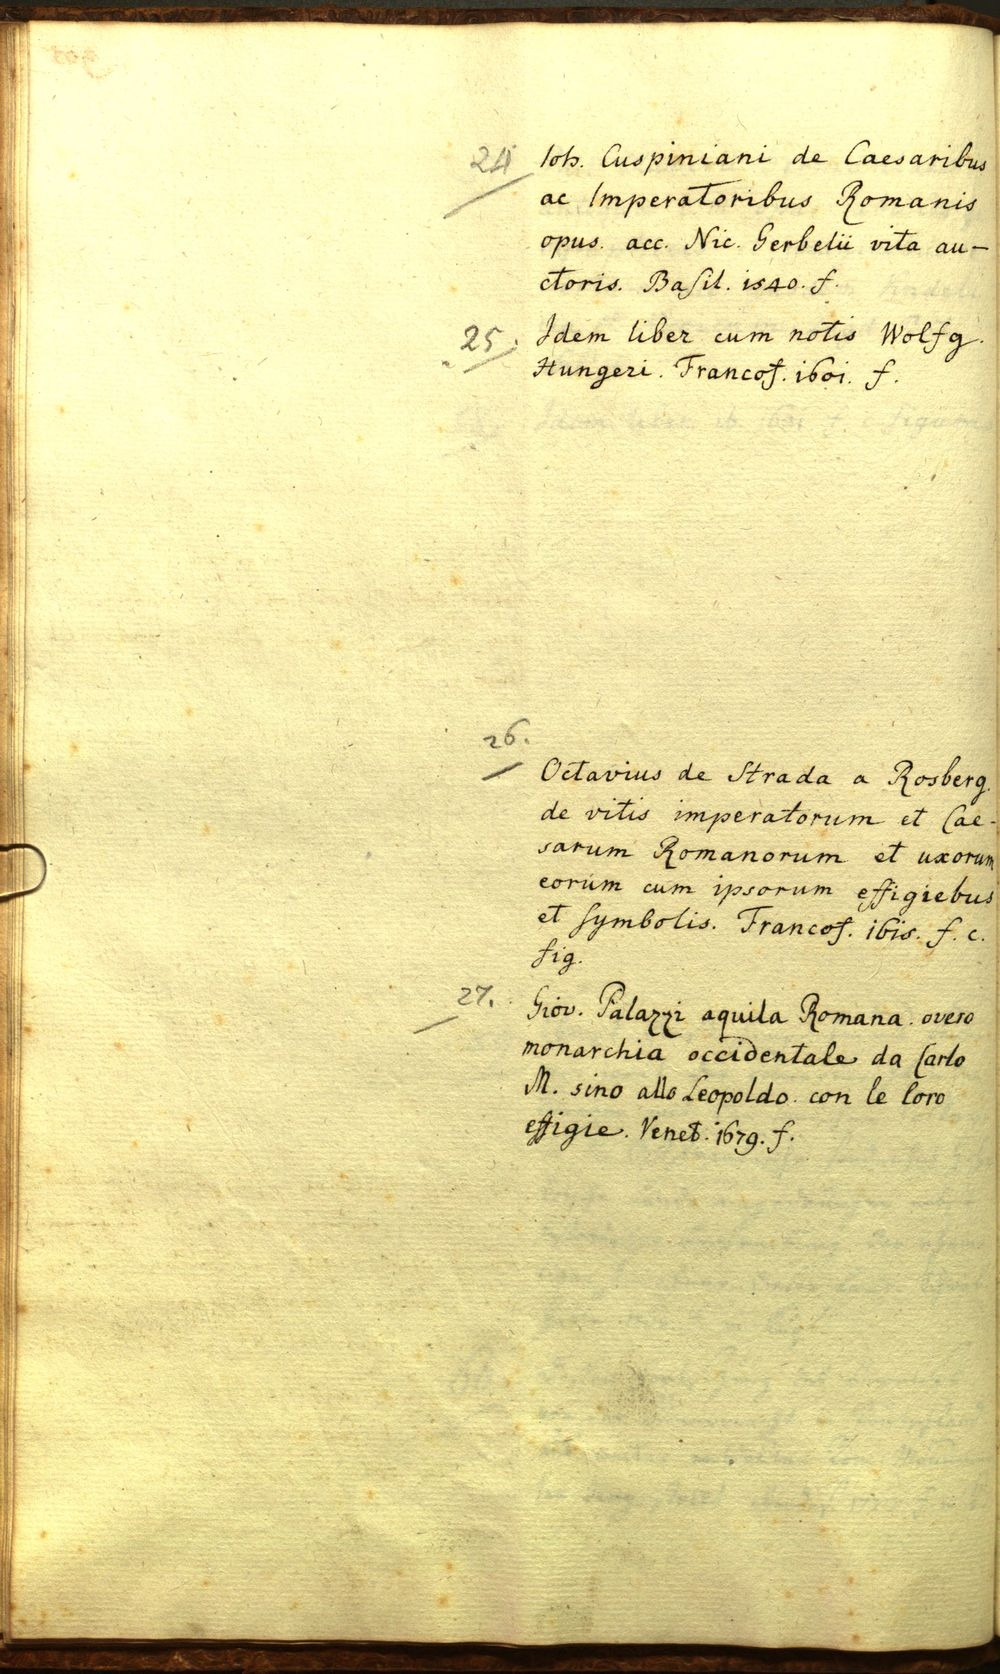 24
Ioh. Cuspiniani de Caesaribus
ac Imperatoribus Romanis
opus. acc. Nic. Gerbelii vita au-
ctoris. Basil. 1540. f.
25.
Idem liber cum notis Wolfg.
Hungeri. Francof. 1601. f.
26.
Octavius de Strada a Rosberg.
de vitis imperatorum et Cae-
sarum Romanorum et uxorum
eorum cum ipsorum effigiebus
et symbolis. Francof. 1615. f. c.
fig.
27.
Giov. Palazzi aquila Romana. overo
monarchia occidentale da Carlo
M. sino allo Leopoldo. con le loro
effigie. Venet. 1679. f.